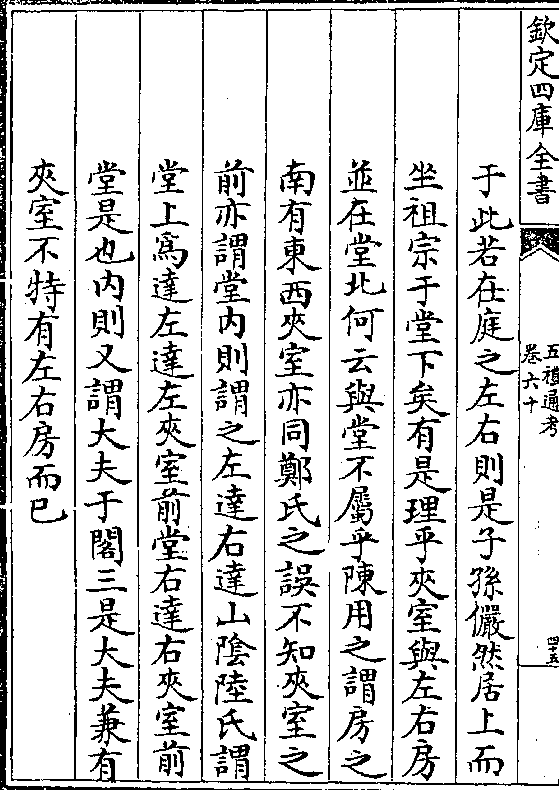 欽定四庫全書
五禮通考
卷六十
四十五
于此若在庭之左右則是子孫儼然居上而
坐祖宗于堂下矣有是理乎夾室與左右房
並在堂北何云與堂不屬乎陳用之謂房之
南有東西夾室亦同鄭氏之誤不知夾室之
前亦謂堂内則謂之左達右達山陰陸氏謂
堂上為達左達左夾室前堂右達右夾室前
堂是也内則又謂大夫于閣三是大夫兼有
夾室不特有左右房而已